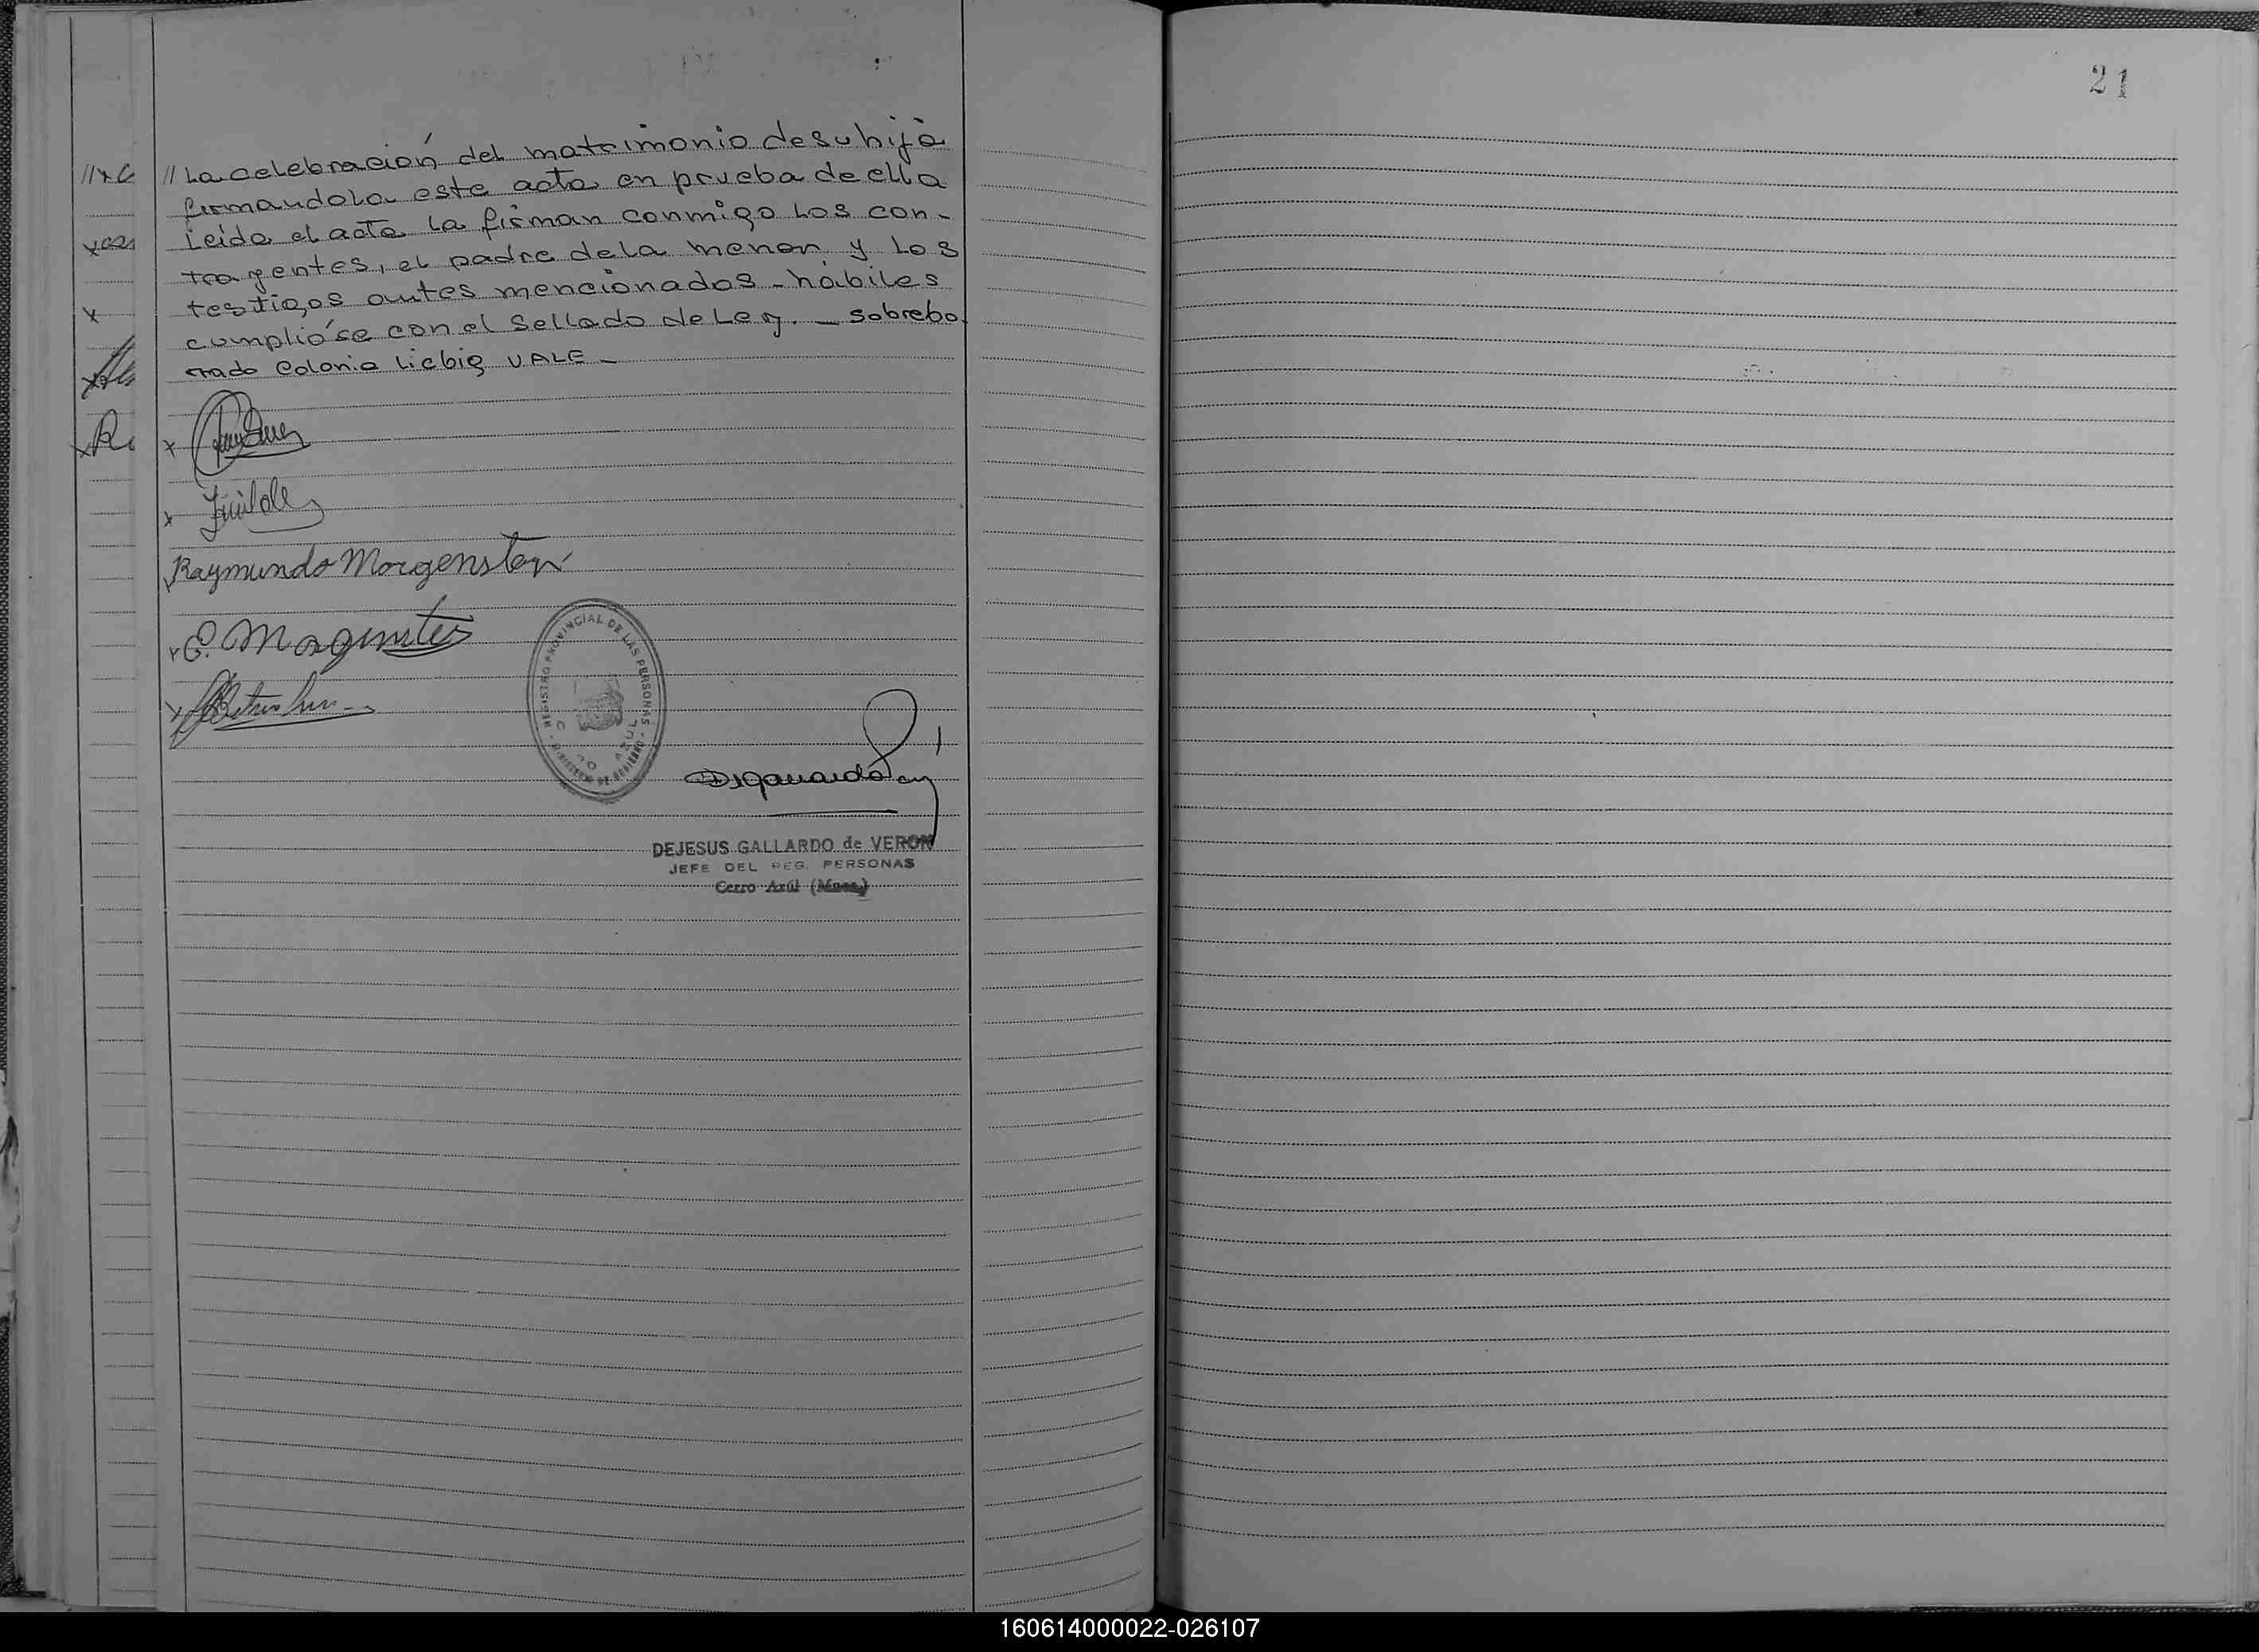 21
// La celebración del matrimonio de su hija
firmandola este acta en prueba de ella
Leida el acta la firman conmigo los con-
trayentes, el padre de la menor y los
testigos antes mencionados - hábiles
cumplióse con el Sellado de Ley. - sobrebo
rrado Colonia Liebig VALE -
x
x
Raymundo Morgenstern
x E.
x
REGISTRO PROVINCIAL DE LAS PERSONAS
DEJESUS GALLARDO de VERON
JEFE DEL REG. PERSONAS
Cerro Azúl (Mnes.)
160614000022-026107